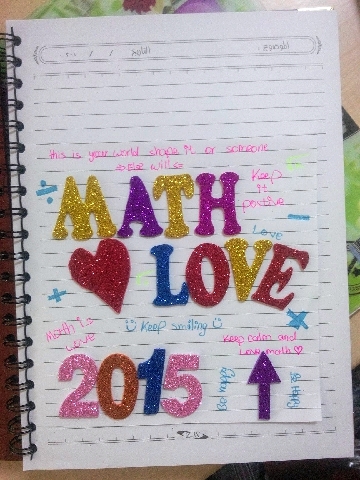 this is your world shape it or someone
else will
MATH
Keep
it
positive
Love
LOVE
Math is
Love
Keep smiling
Keep calm and
Love math
2015
Be happy
Be Happy